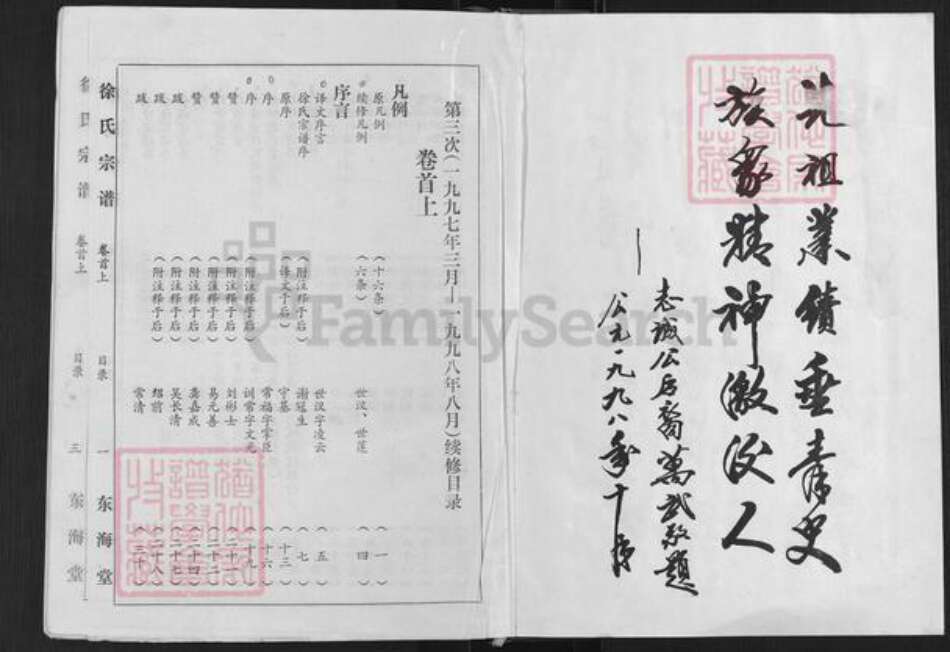 祖業績垂青史
族象精神激後人
志誠公后裔萬武敬題
公元一九九八年十月
第三次(一九九七年三月—一九九八年八月)续修目录
卷首上
凡例
原凡例 (十六条) (一)
续修凡例 (六条) 世汉、世莲 (四)
序言
译文序言 世汉字凌云 (五)
徐氏宗谱序 (附注释于后) 谢冠生 (七)
原序 (译文于后) 守基 (十三)
序 常福字掌臣 (十六)
序 (附注释于后) 训常字文光 (十九)
赞 (附注释于后) 刘彬士 (二十一)
赞 (附注释于后) 易元善 (二十二)
赞 (附注释于后) 龚嘉成 (二十四)
跋 (附注释于后) 吴长清 (二十七)
跋 (附注释于后) 绍前 (二十八)
跋 常清 (三十)
徐氏宗谱 卷首上 目录 一 东海堂
氏宗谱 卷首上 目录 三 东海堂
FamilySearch